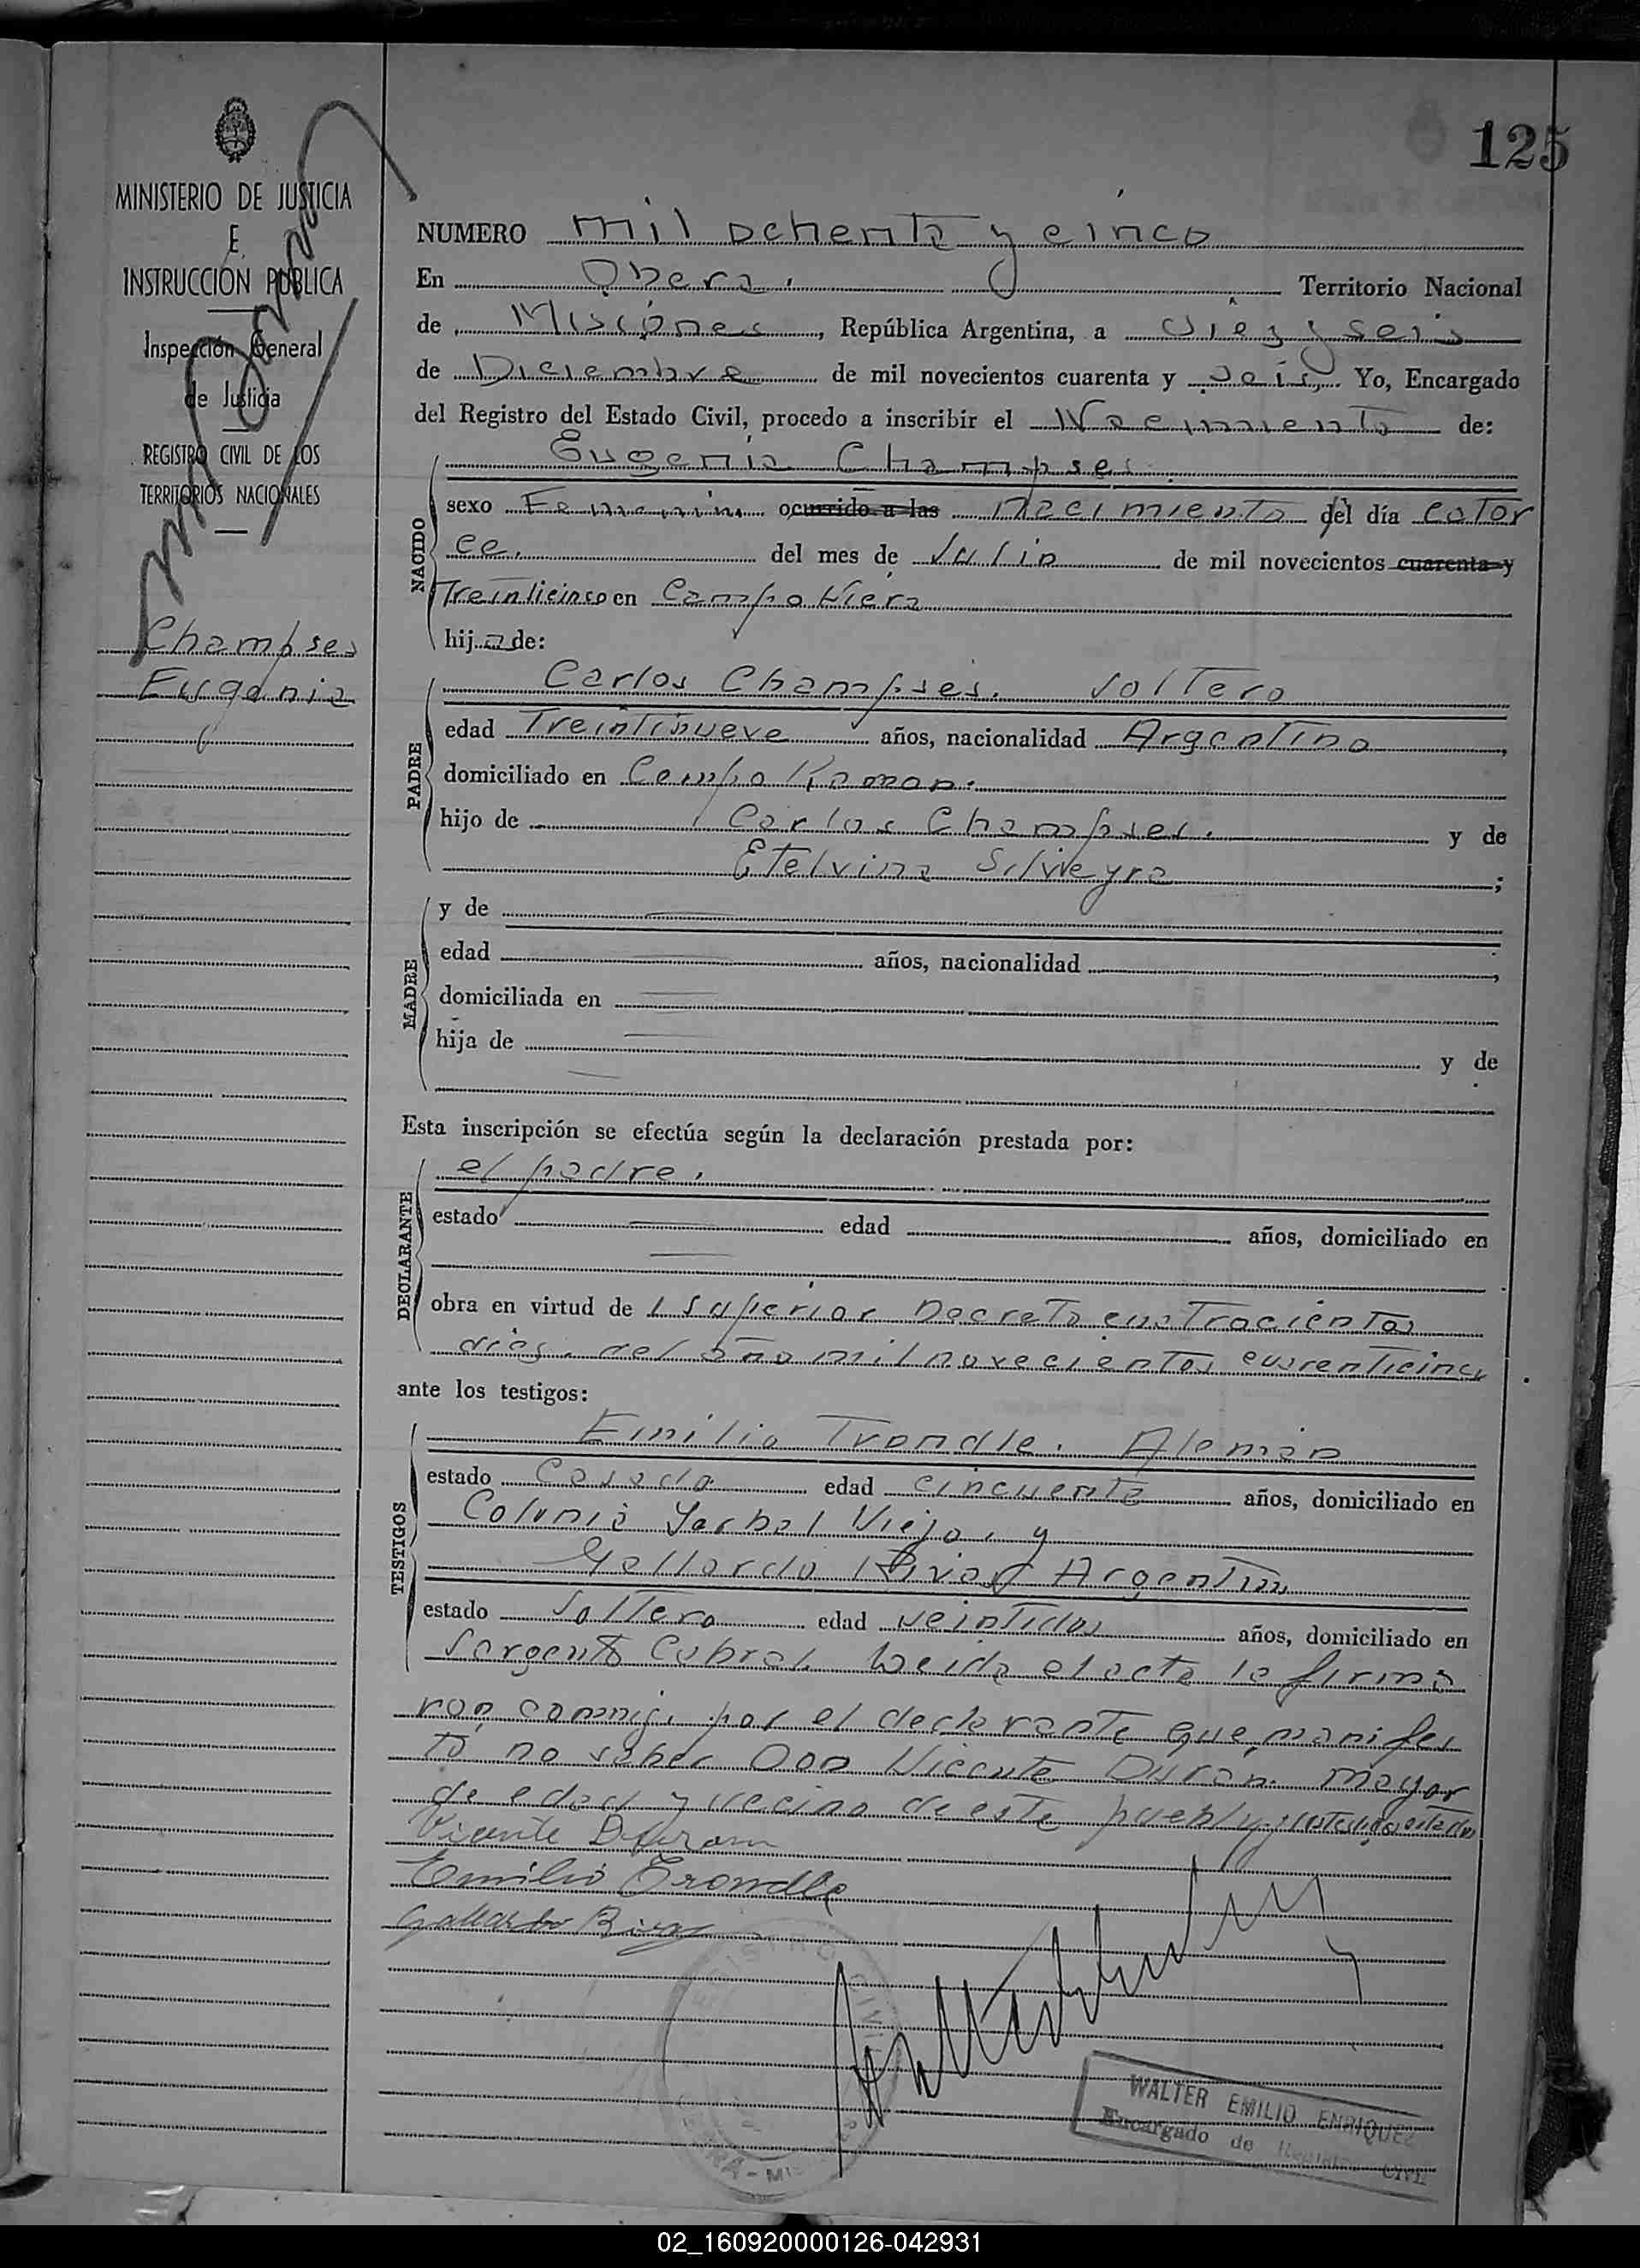 125
MINISTERIO DE JUSTICIA
E
INSTRUCCIÓN PUBLICA
Inspección General
de Justicia
REGISTRO CIVIL DE LOS
TERRITORIOS NACIONALES
Champses
Eugenia
NUMERO mil ochenta y cinco
En Obera. Territorio Nacional
de Misiones, República Argentina, a diez y seis
de Diciembre de mil novecientos cuarenta y seis, Yo, Encargado
del Registro del Estado Civil, procedo a inscribir el Nacimiento de:
NACIDO
Eugenia Champses
sexo Femenino ocurrido a las nacimiento del día cator
ce. del mes de Julio de mil novecientos cuarenta y
Treinticinco en Campo Viera
hija de:
PADRE
Carlos Champses. soltero
edad Treintinueve años, nacionalidad Argentino,
domiciliado en Campo Ramon.
hijo de Carlos Champses. y de
Etelvina Silveyra;
MADRE
y de
edad años, nacionalidad,
domiciliada en
hija de y de
Esta inscripción se efectúa según la declaración prestada por:
DECLARANTE
el padre.
estado edad años, domiciliado en
obra en virtud de l superior Decreto cuatrocientos
diez. del año mil novecientos cuarenticinco
ante los testigos:
TESTIGOS
Emilio Trondle. Aleman
estado Casado edad cincuenta años, domiciliado en
Colonia Yerbal Viejo. y
Gallardo Rivas Argentino
estado soltero edad veintidos años, domiciliado en
Sargento Cabral. Leida el acta la firma
ron conmigo por el declarante que manifes
tó no saber Don Vicente Duran. mayor
de edad y vecino de este pueblo y los testigos citados
Vicente Duran
Emilio Trondle
Gallardo Rivas
REGISTRO CIVIL
WALTER EMILIO ENRIQUEZ
Encargado de Registro CIVIL
02_160920000126-042931